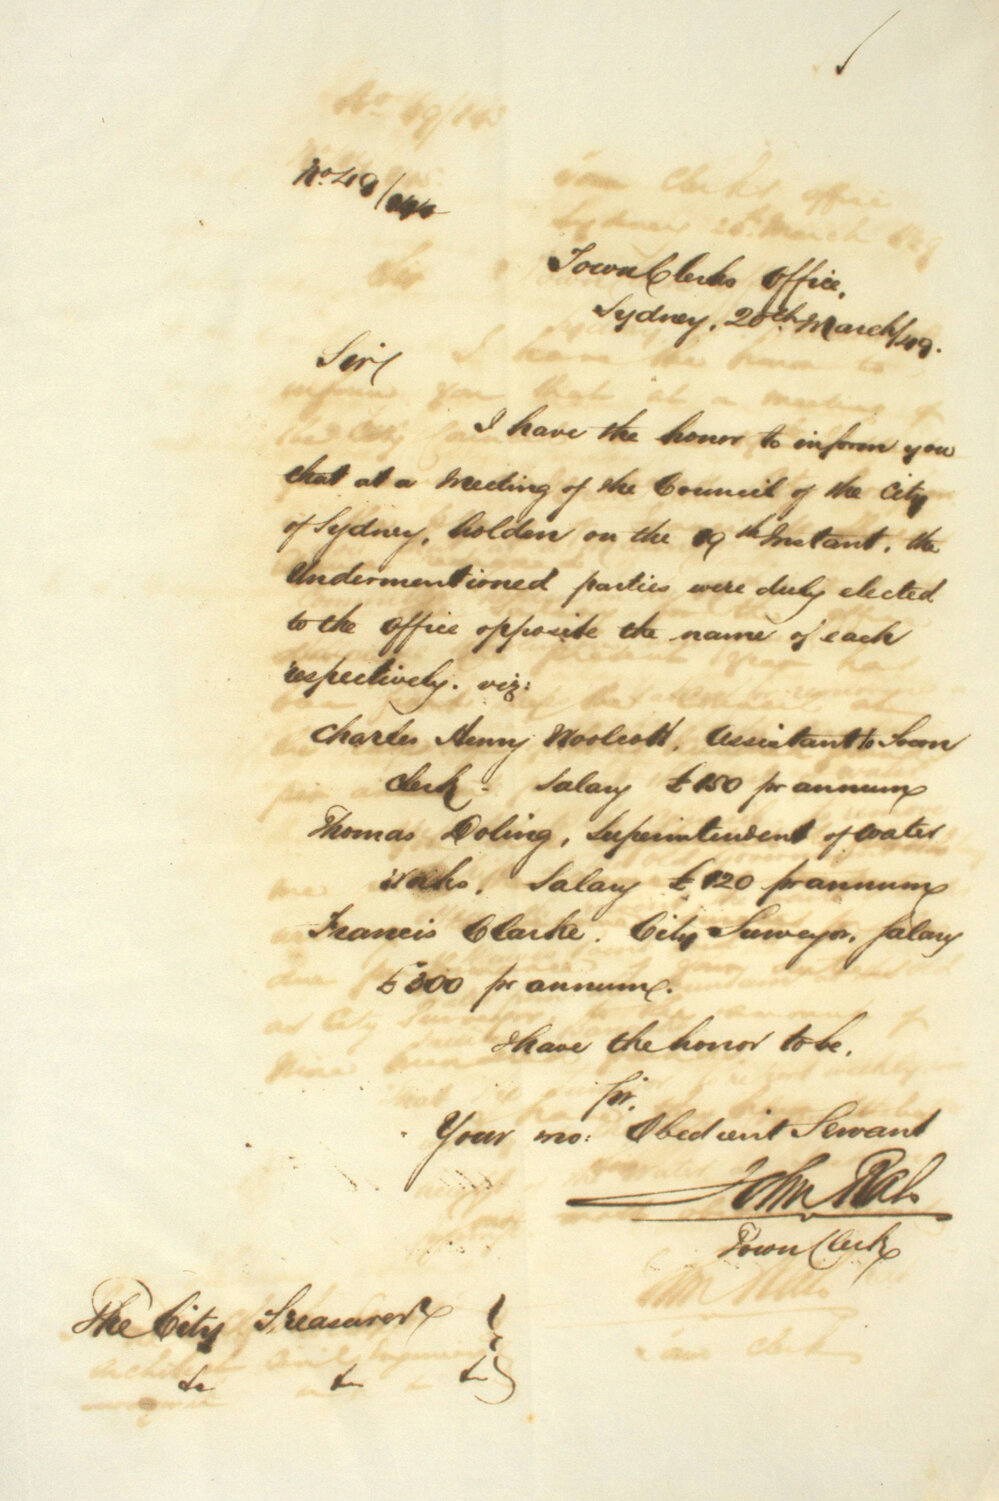 No. 49/
Town Clerks Office,
Sydney, 20th March/49.
Sir
I have the honor to inform you
that at a Meeting of the Council of the City
of Sydney, holden on the 19th Instant, the
Undermentioned parties were duly elected
to the Office opposite the name of each
respectively. viz:
Charles Henry Woolcott, Assistant to Town
Clerk - Salary £150 pr annum
Thomas Doling, Superintendent of Water
Works, Salary £120 pr annum
Francis Clarke. City Surveyor, Salary
£300 pr annum.
I have the honor to be,
Sir,
Your mo: Obedient Servant
John Rae
Town Clerk
The City Treasurer
&c &c &c